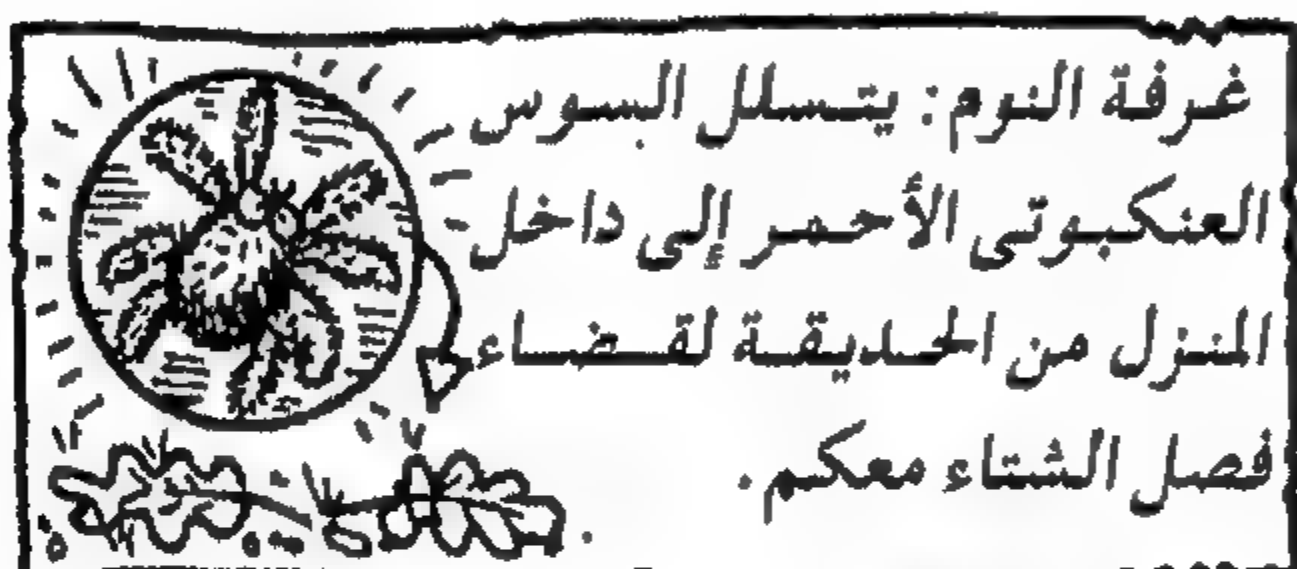 غرفة النوم: يتسلل السوس
العنكبوتى الأحمر إلى داخل
المنزل من الحديقة لقضاء
فصل الشتاء معكم.